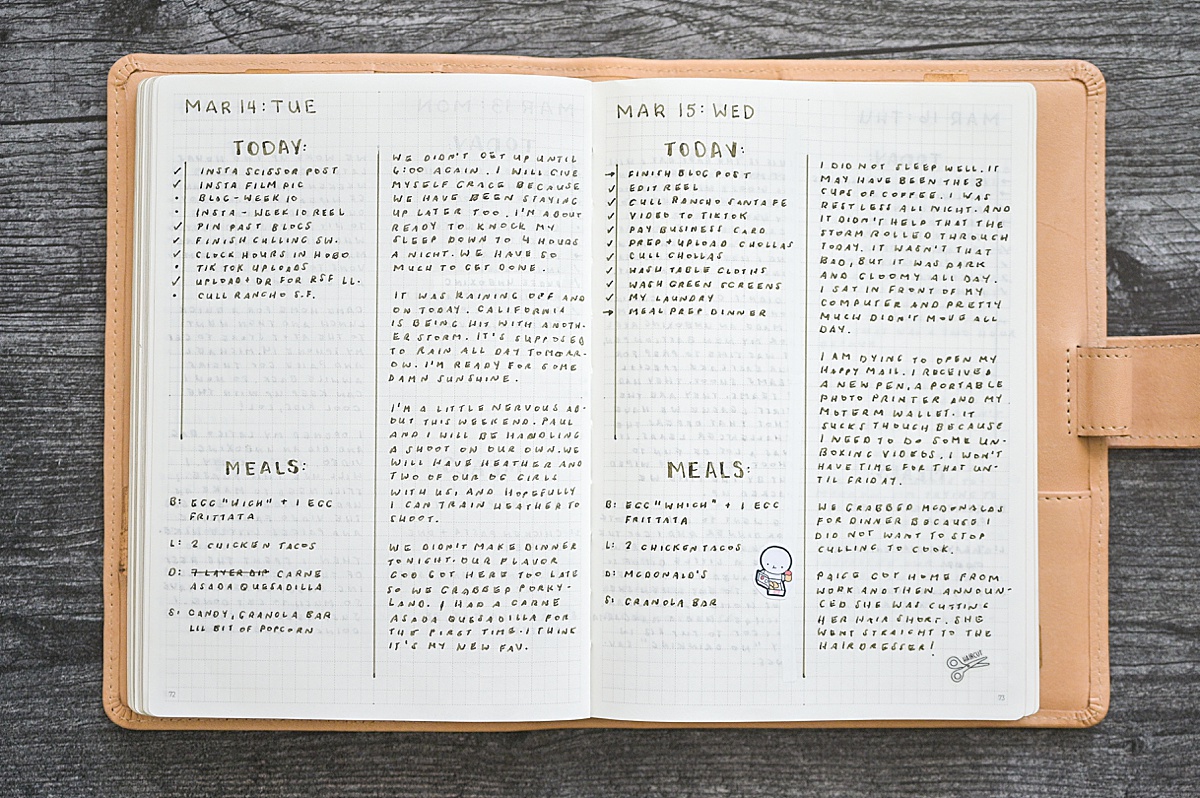 MAR 14: TUE
TODAY:
✓ INSTA SCISSOR POST
✓ INSTA FILM PIC
• BLOG - WEEK 10
• INSTA - WEEK 10 REEL
✓ PIN PAST BLOGS
✓ FINISH CULLING SW.
✓ CLOCK HOURS IN HOBO
• TIK TOK UPLOADS
✓ UPLOAD + DR FOR RSF LL.
• CULL RANCHO S.F.
MEALS:
B: EGG "WICH" + 1 EGG
FRITTATA
L: 2 CHICKEN TACOS
D: 7 LAYER DIP CARNE
ASADA QUESADILLA
S: CANDY, GRANOLA BAR
LIL BIT OF POPCORN
72
WE DIDN'T GET UP UNTIL
6:00 AGAIN. I WILL GIVE
MYSELF GRACE BECAUSE
WE HAVE BEEN STAYING
UP LATER TOO. I'M ABOUT
READY TO KNOCK MY
SLEEP DOWN TO 4 HOURS
A NIGHT. WE HAVE SO
MUCH TO GET DONE.
IT WAS RAINING OFF AND
ON TODAY. CALIFORNIA
IS BEING HIT WITH ANOTH-
ER STORM. IT'S SUPPOSED
TO RAIN ALL DAY TOMORR-
OW. I'M READY FOR SOME
DAMN SUNSHINE.
I'M A LITTLE NERVOUS AB-
OUT THIS WEEKEND. PAUL
AND I WILL BE HANDLING
A SHOOT ON OUR OWN. WE
WILL HAVE HEATHER AND
TWO OF OUR DC GIRLS
WITH US, AND HOPEFULLY
I CAN TRAIN HEATHER TO
SHOOT.
WE DIDN'T MAKE DINNER
TONIGHT. OUR FLAVOR
GOD GOT HERE TOO LATE
SO WE GRABBED PORKY-
LAND. I HAD A CARNE
ASADA QUESADILLA FOR
THE FIRST TIME. I THINK
IT'S MY NEW FAV.
MAR 15: WED
TODAY:
→ FINISH BLOG POST
✓ EDIT REEL
✓ CULL RANCHO SANTA FE
✓ VIDEO TO TIKTOK
✓ PAY BUSINESS CARD
✓ PREP + UPLOAD CHOLLAS
✓ CULL CHOLLAS
✓ WASH TABLE CLOTHS
✓ WASH GREEN SCREENS
✓ MY LAUNDRY
→ MEAL PREP DINNER
MEALS:
B: EGG "WHICH" + 1 EGG
FRITTATA
L: 2 CHICKEN TACOS
D: MCDONALD'S
S: GRANOLA BAR
I DID NOT SLEEP WELL. IT
MAY HAVE BEEN THE 3
CUPS OF COFFEE. I WAS
RESTLESS ALL NIGHT. AND
IT DIDN'T HELP THAT THE
STORM ROLLED THROUGH
TODAY. IT WASN'T THAT
BAD, BUT IT WAS DARK
AND GLOOMY ALL DAY.
I SAT IN FRONT OF MY
COMPUTER AND PRETTY
MUCH DIDN'T MOVE ALL
DAY.
I AM DYING TO OPEN MY
HAPPY MAIL. I RECEIVED
A NEW PEN, A PORTABLE
PHOTO PRINTER AND MY
MOTERM WALLET. IT
SUCKS THOUGH BECAUSE
I NEED TO DO SOME UN-
BOXING VIDEOS. I WON'T
HAVE TIME FOR THAT UN-
TIL FRIDAY.
WE GRABBED MCDONALDS
FOR DINNER BECAUSE I
DID NOT WANT TO STOP
CULLING TO COOK.
PAIGE GOT HOME FROM
WORK AND THEN ANNOUN-
CED SHE WAS CUTTING
HER HAIR SHORT. SHE
WENT STRAIGHT TO THE
HAIRDRESSER!
HAIRCUT
73